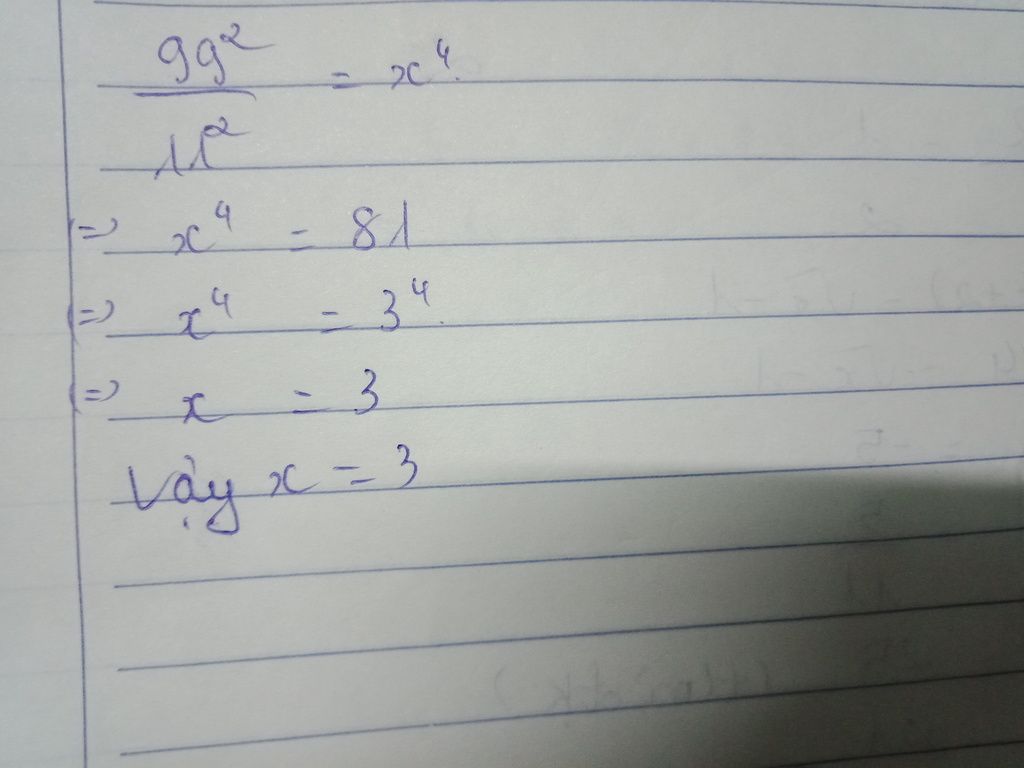 99²
= x⁴
11²
=> x⁴ = 81
=> x⁴ = 3⁴
=> x = 3
Vậy x = 3